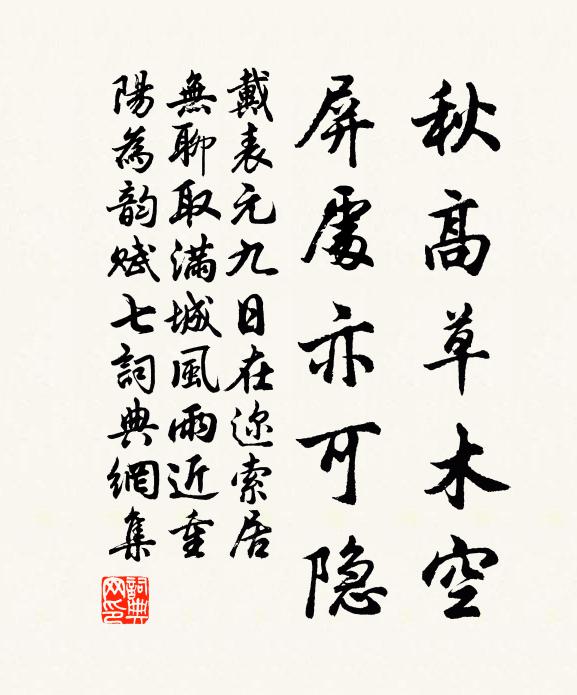 秋高草木空
屏處亦可隐
戴表元九日在迩索居
無聊取滿城風雨近重
陽為韵賦七詞典網集
詞典網印